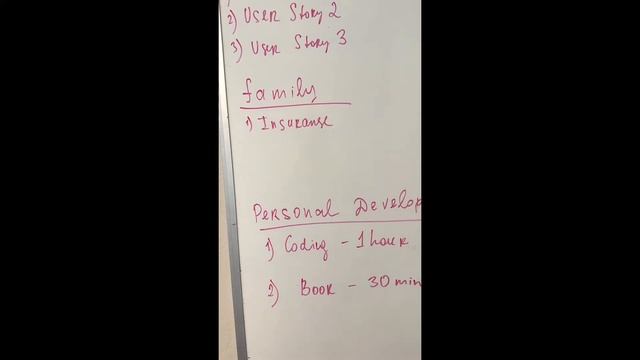 2) User Story 2
3) User Story 3
family
1) Insuranse
Personal Develop
1) Coding - 1 hour
2) Book - 30 min